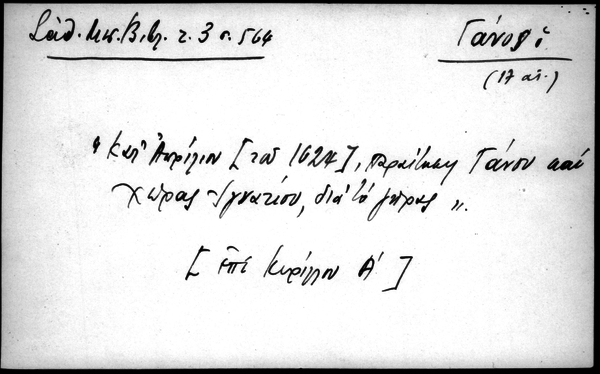 Σάθ. Μεσ. Βιβλ. τ. 3 σ. 564
Γάνος:
(17 αἰ.)
"Κατ' Ἀπρίλιον [τοῦ 1624], παραίτησις Γάνου καὶ
χώρας Ἰγνατίου, διὰ τὸ γῆρας".
[ἐπὶ Κυρίλλου Α']